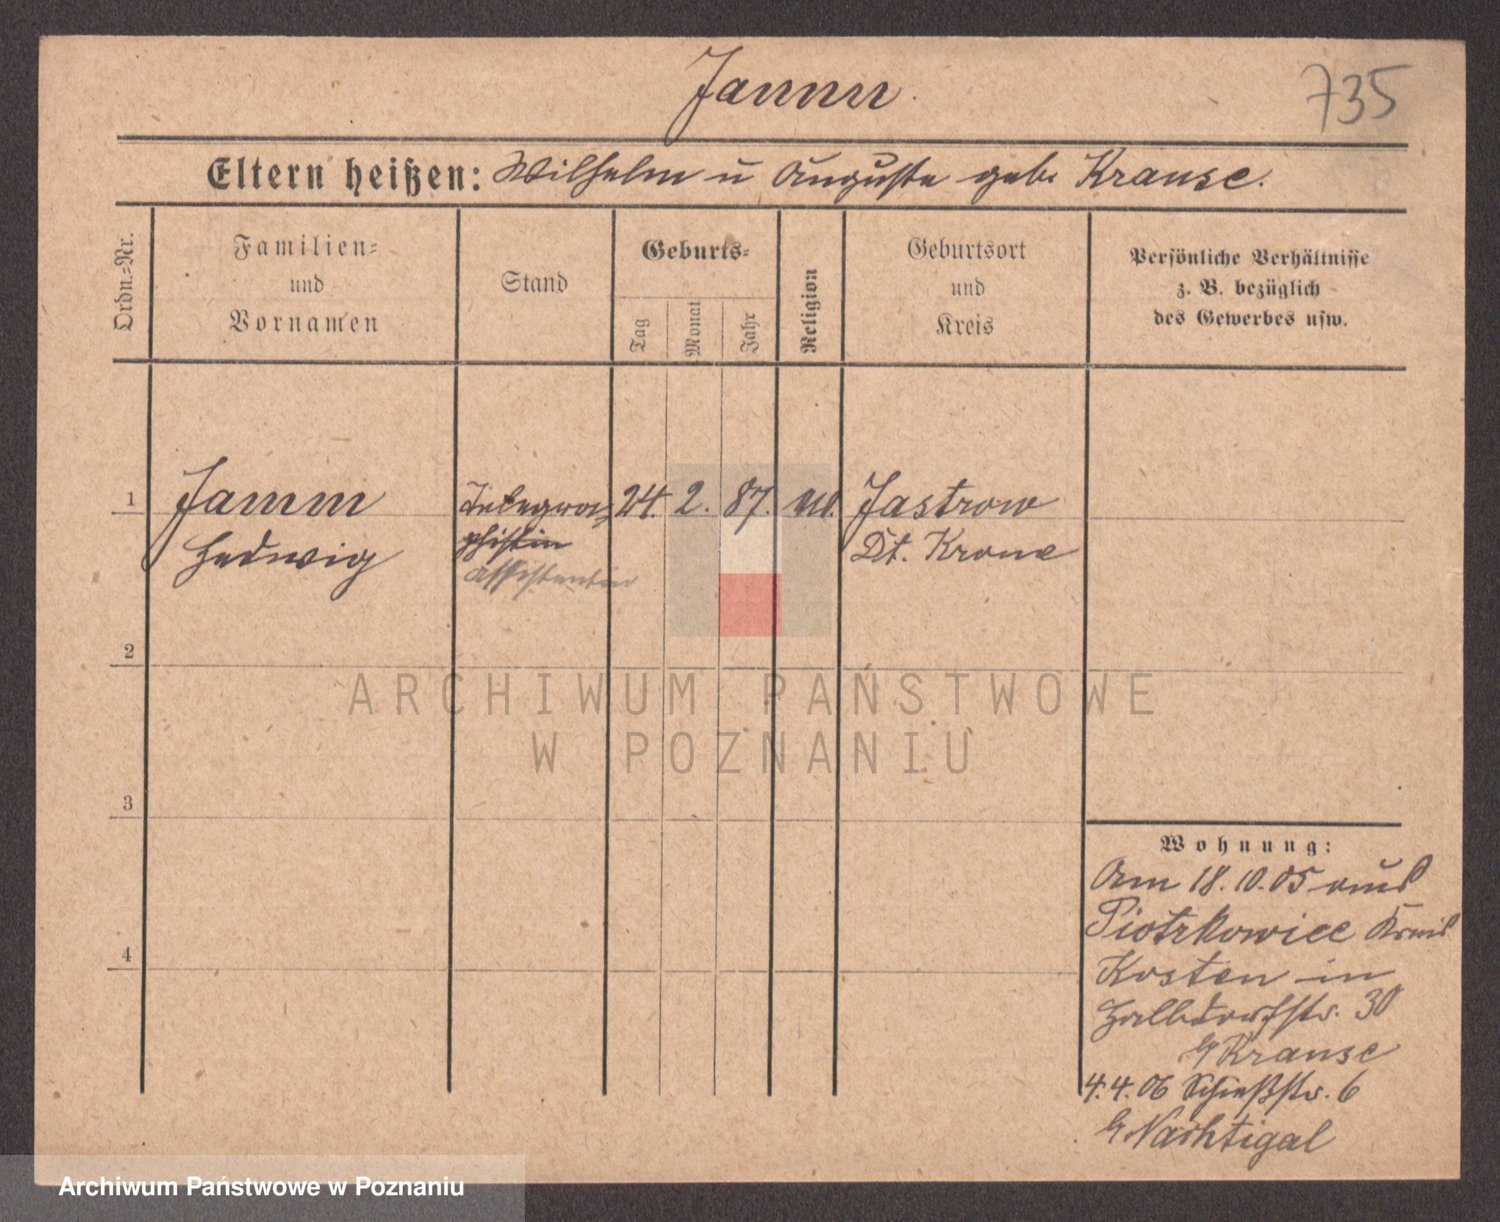 Jamm
735
Eltern heißen: Wilhelm u Auguste geb. Krause.
Ordn.=Nr.
Familien=
und
Vornamen
Stand
Geburts=
Tag
Monat
Jahr
Religion
Geburtsort
und
Kreis
Persönliche Verhältnisse
z. B. bezüglich
des Gewerbes usw.
1
Jamm
Hedwig
Telegra=
phistin
Assistentin
24. 2. 87.
Jastrow
Dt. Krone
2
3
4
Wohnung:
Am 18.10.05 aus
Piotrkowice Kreis
Kosten in
Halbdorfstr. 30
Krause
4.4.06 Schießstr. 6
Nachtigal
ARCHIWUM PAŃSTWOWE
W POZNANIU
Archiwum Państwowe w Poznaniu